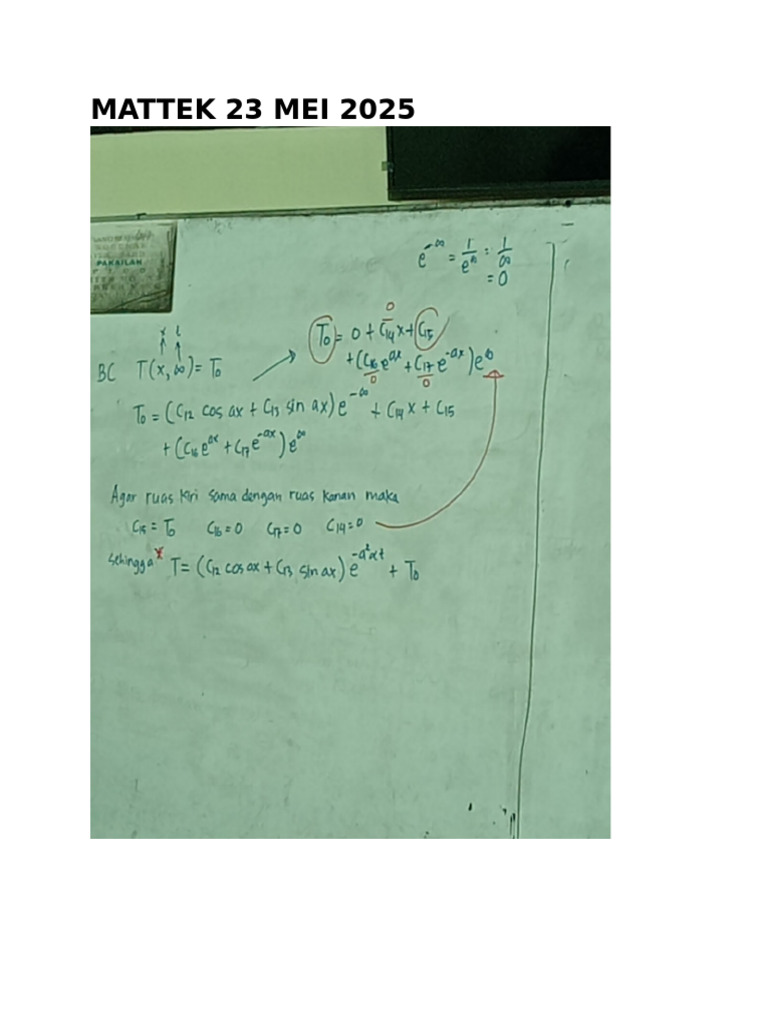 MATTEK 23 MEI 2025
PAKAILAH
e^-∞ = 1/e^∞ = 1/∞
= 0
x t
BC T(x, ∞) = T0
0
T0 = 0 + C14 x + C15
+ (C16 e^ax + C17 e^-ax) e^∞
0 0
T0 = (C12 cos ax + C13 sin ax) e^-∞ + C14 x + C15
+ (C16 e^ax + C17 e^-ax) e^∞
Agar ruas kiri sama dengan ruas kanan maka
C15 = T0 C16 = 0 C17 = 0 C14 = 0
Sehingga * T = (C12 cos ax + C13 sin ax) e^-a²αt + T0